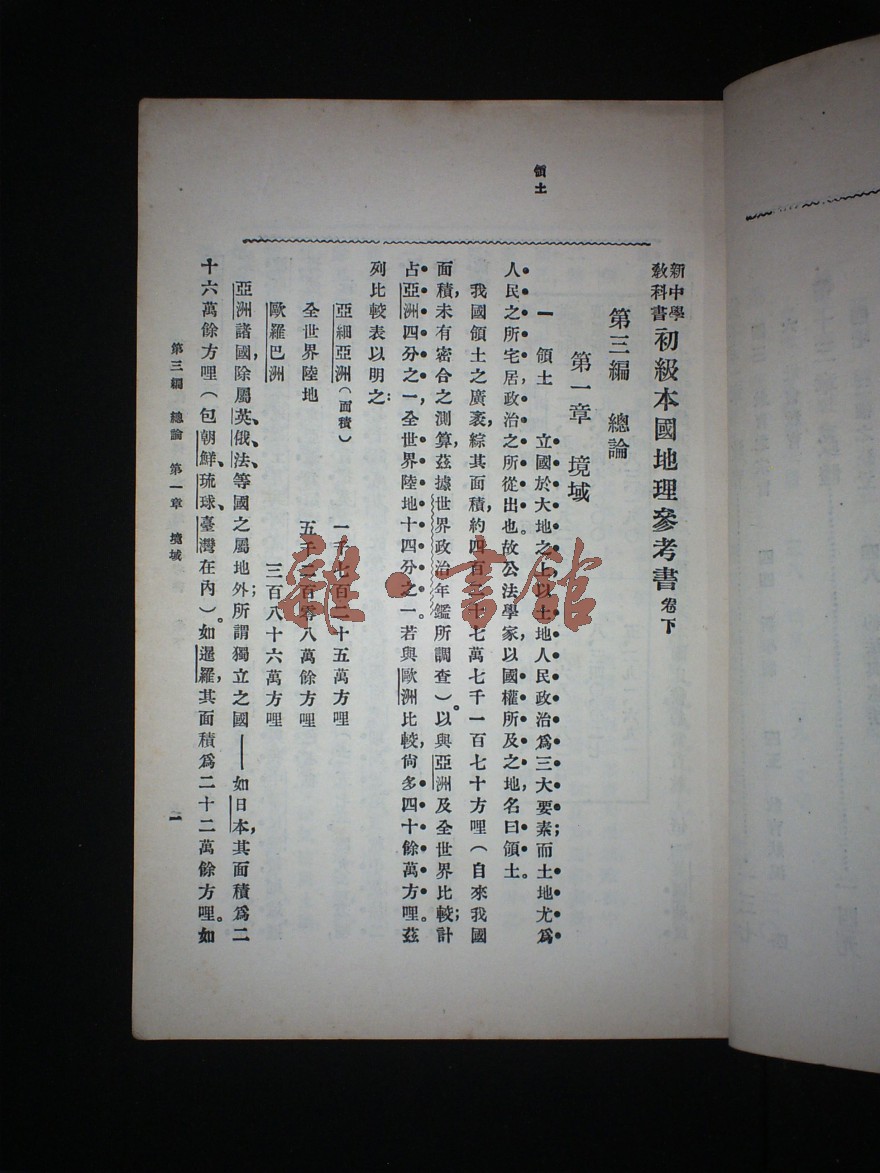 領土
新中學
教科書
初級本國地理參考書 卷下
第三編 總論
第一章 境域
一 領土 立國於大地之上,以土地人民政治爲三大要素;而土地尤爲
人民之所宅居,政治之所從出也。故公法學家,以國權所及之地,名曰領土。
我國領土之廣袤,綜其面積,約四百二十七萬七千一百七十方哩(自來我國
面積,未有密合之測算,茲據世界政治年鑑所調查)。以與亞洲及全世界比較;計
占亞洲四分之一,全世界陸地十四分之一。若與歐洲比較,尙多四十餘萬方哩。茲
列比較表以明之:
亞細亞洲(面積) 一千七百二十五萬方哩
全世界陸地 五千二百零八萬餘方哩
歐羅巴洲 三百八十六萬方哩
亞洲諸國,除屬英、俄、法、等國之屬地外;所謂獨立之國——如日本,其面積爲二
十六萬餘方哩(包朝鮮、琉球、臺灣在內)。如暹羅,其面積爲二十二萬餘方哩。如
第三編 總論 第一章 境域
一
雜·書館